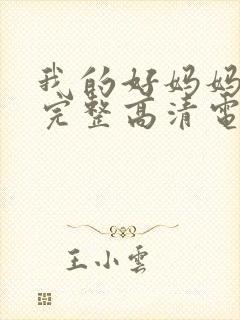 我的好妈妈
完整高清电
王小雲